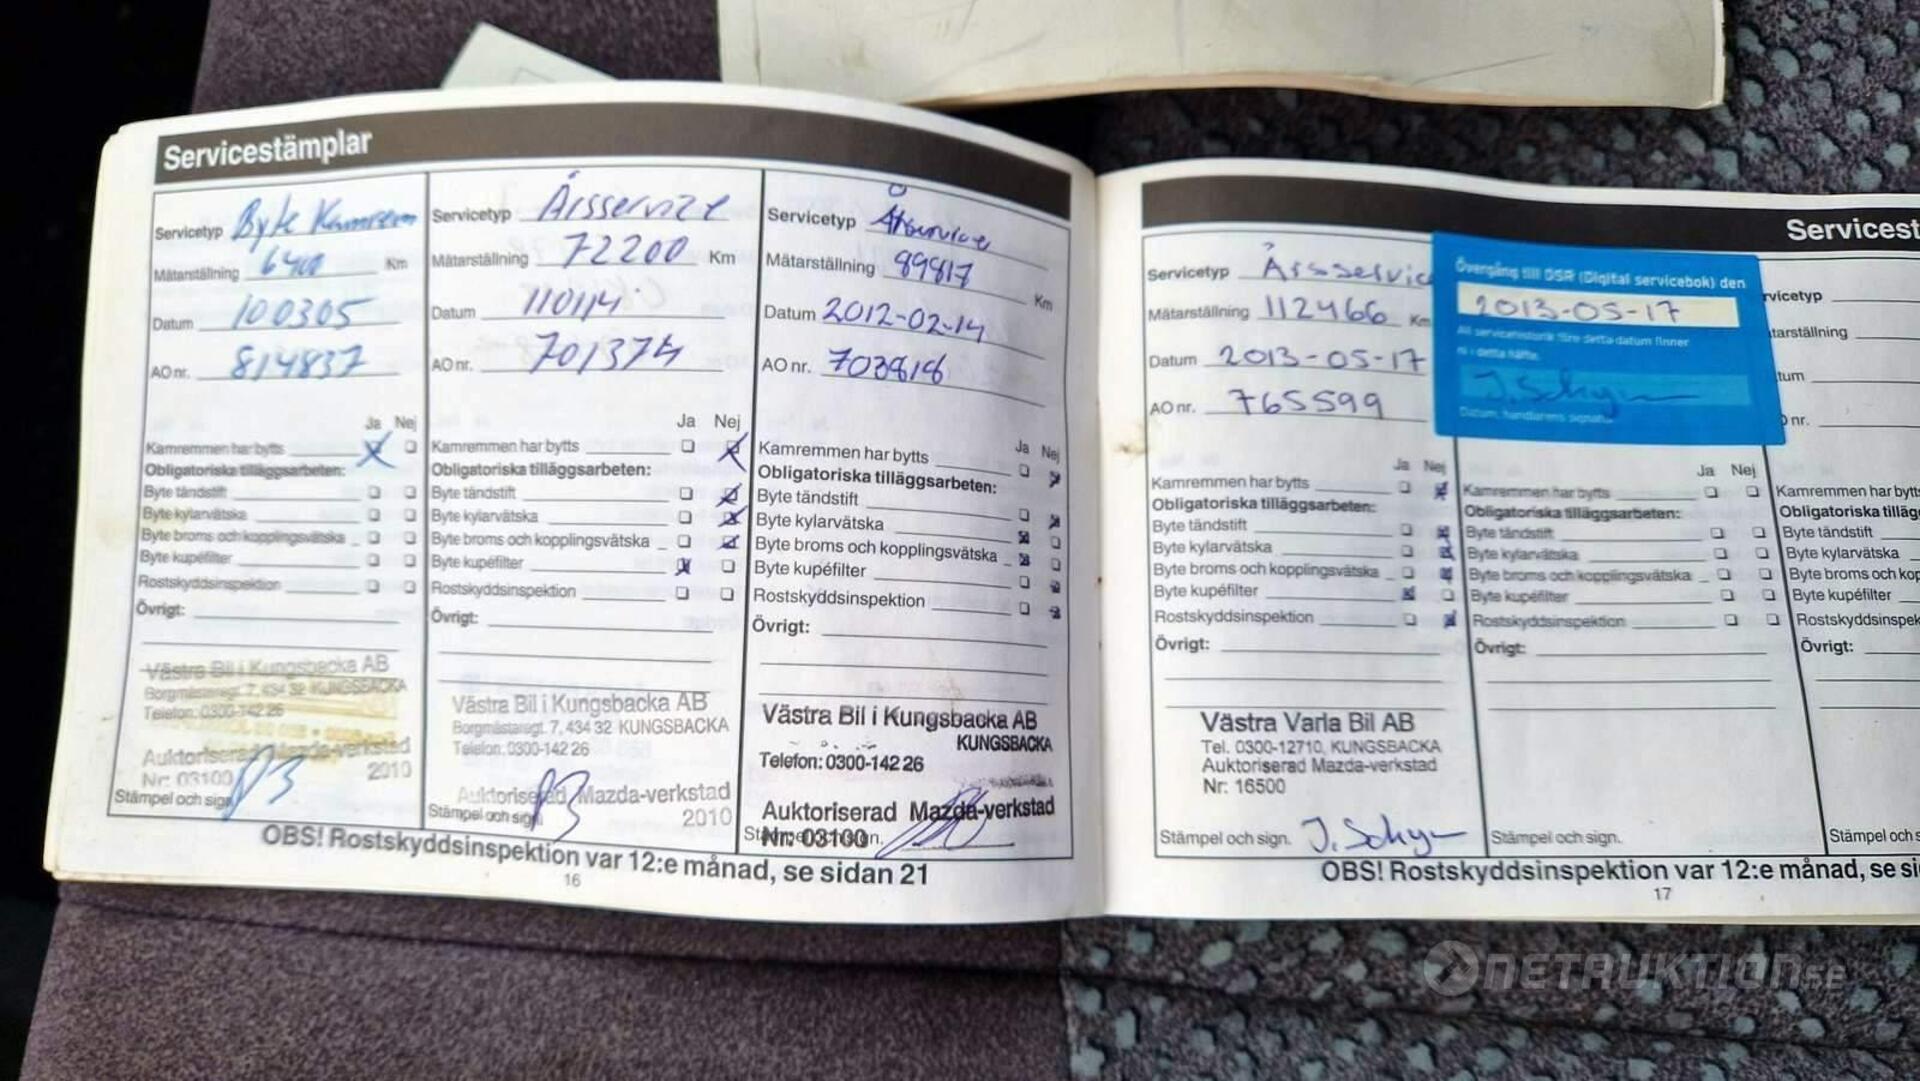 Servicestämplar
Servicetyp Byte Kamrem
Mätarställning Km
Datum 100305
AO nr. 814837
Ja Nej
Kamremmen har bytts
Obligatoriska tilläggsarbeten:
Byte tändstift
Byte kylarvätska
Byte broms och kopplingsvätska
Byte kupéfilter
Rostskyddsinspektion
Övrigt:
Västra Bil i Kungsbacka AB
Borgmästaregt. 7, 434 32 KUNGSBACKA
Telefon: 0300-142 26
Auktoriserad Mazda-verkstad
Nr: 03100 2010
Stämpel och sign.
Servicetyp Årsservice
Mätarställning 72200 Km
Datum 110114
AO nr. 701374
Ja Nej
Kamremmen har bytts
Obligatoriska tilläggsarbeten:
Byte tändstift
Byte kylarvätska
Byte broms och kopplingsvätska
Byte kupéfilter
Rostskyddsinspektion
Övrigt:
Västra Bil i Kungsbacka AB
Borgmästaregt. 7, 434 32 KUNGSBACKA
Telefon: 0300-142 26
Auktoriserad Mazda-verkstad
2010
Stämpel och sign.
Servicetyp Årservice
Mätarställning 89817 Km
Datum 2012-02-14
AO nr. 703818
Ja Nej
Kamremmen har bytts
Obligatoriska tilläggsarbeten:
Byte tändstift
Byte kylarvätska
Byte broms och kopplingsvätska
Byte kupéfilter
Rostskyddsinspektion
Övrigt:
Västra Bil i Kungsbacka AB
KUNGSBACKA
Telefon: 0300-142 26
Auktoriserad Mazda-verkstad
Nr: 03100
OBS! Rostskyddsinspektion var 12:e månad, se sidan 21
16
Servicest
Servicetyp Årsservice
Mätarställning 112466 Km
Datum 2013-05-17
AO nr. 765599
Ja Nej
Kamremmen har bytts
Obligatoriska tilläggsarbeten:
Byte tändstift
Byte kylarvätska
Byte broms och kopplingsvätska
Byte kupéfilter
Rostskyddsinspektion
Övrigt:
Västra Varla Bil AB
Tel. 0300-12710, KUNGSBACKA
Auktoriserad Mazda-verkstad
Nr: 16500
Stämpel och sign.
Övergång till DSR (Digital servicebok) den
2013-05-17
All servicehistorik före detta datum finner
ni i detta häfte.
Datum, handlarens signatur
Ja Nej
Kamremmen har bytts
Obligatoriska tilläggsarbeten:
Byte tändstift
Byte kylarvätska
Byte broms och kopplingsvätska
Byte kupéfilter
Rostskyddsinspektion
Övrigt:
Stämpel och sign.
rvicetyp
tarställning
tum
nr.
Kamremmen har bytts
Obligatoriska tilläg
Byte tändstift
Byte kylarvätska
Byte broms och kop
Byte kupéfilter
Rostskyddsinspek
Övrigt:
Stämpel och s
OBS! Rostskyddsinspektion var 12:e månad, se si
17
ONETRUKTION.SE